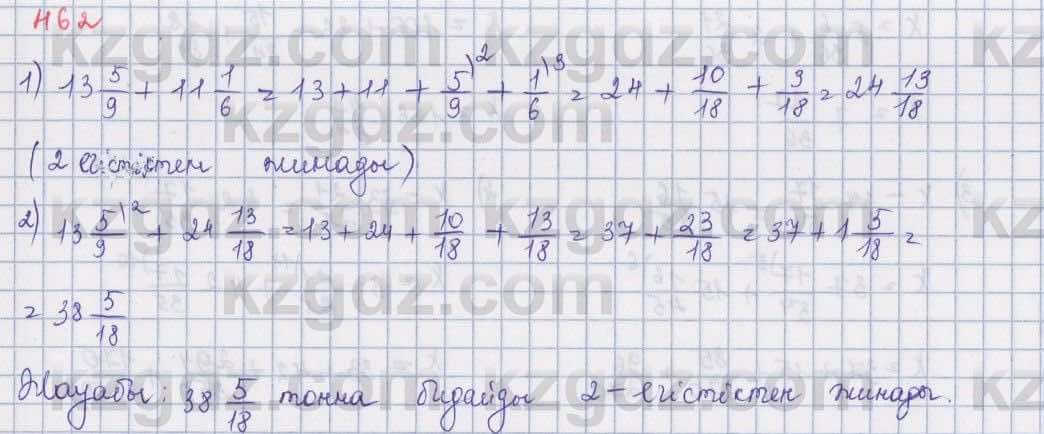 462
1) 13 5/9 + 11 1/6 = 13 + 11 + 5/9\2 + 1/6\3 = 24 + 10/18 + 3/18 = 24 13/18
(2 егістіктен жинады)
2) 13 5/9\2 + 24 13/18 = 13 + 24 + 10/18 + 13/18 = 37 + 23/18 = 37 + 1 5/18 =
= 38 5/18
Жауабы: 38 5/18 тонна бидайды 2-егістіктен жинады.
kzgdz.com